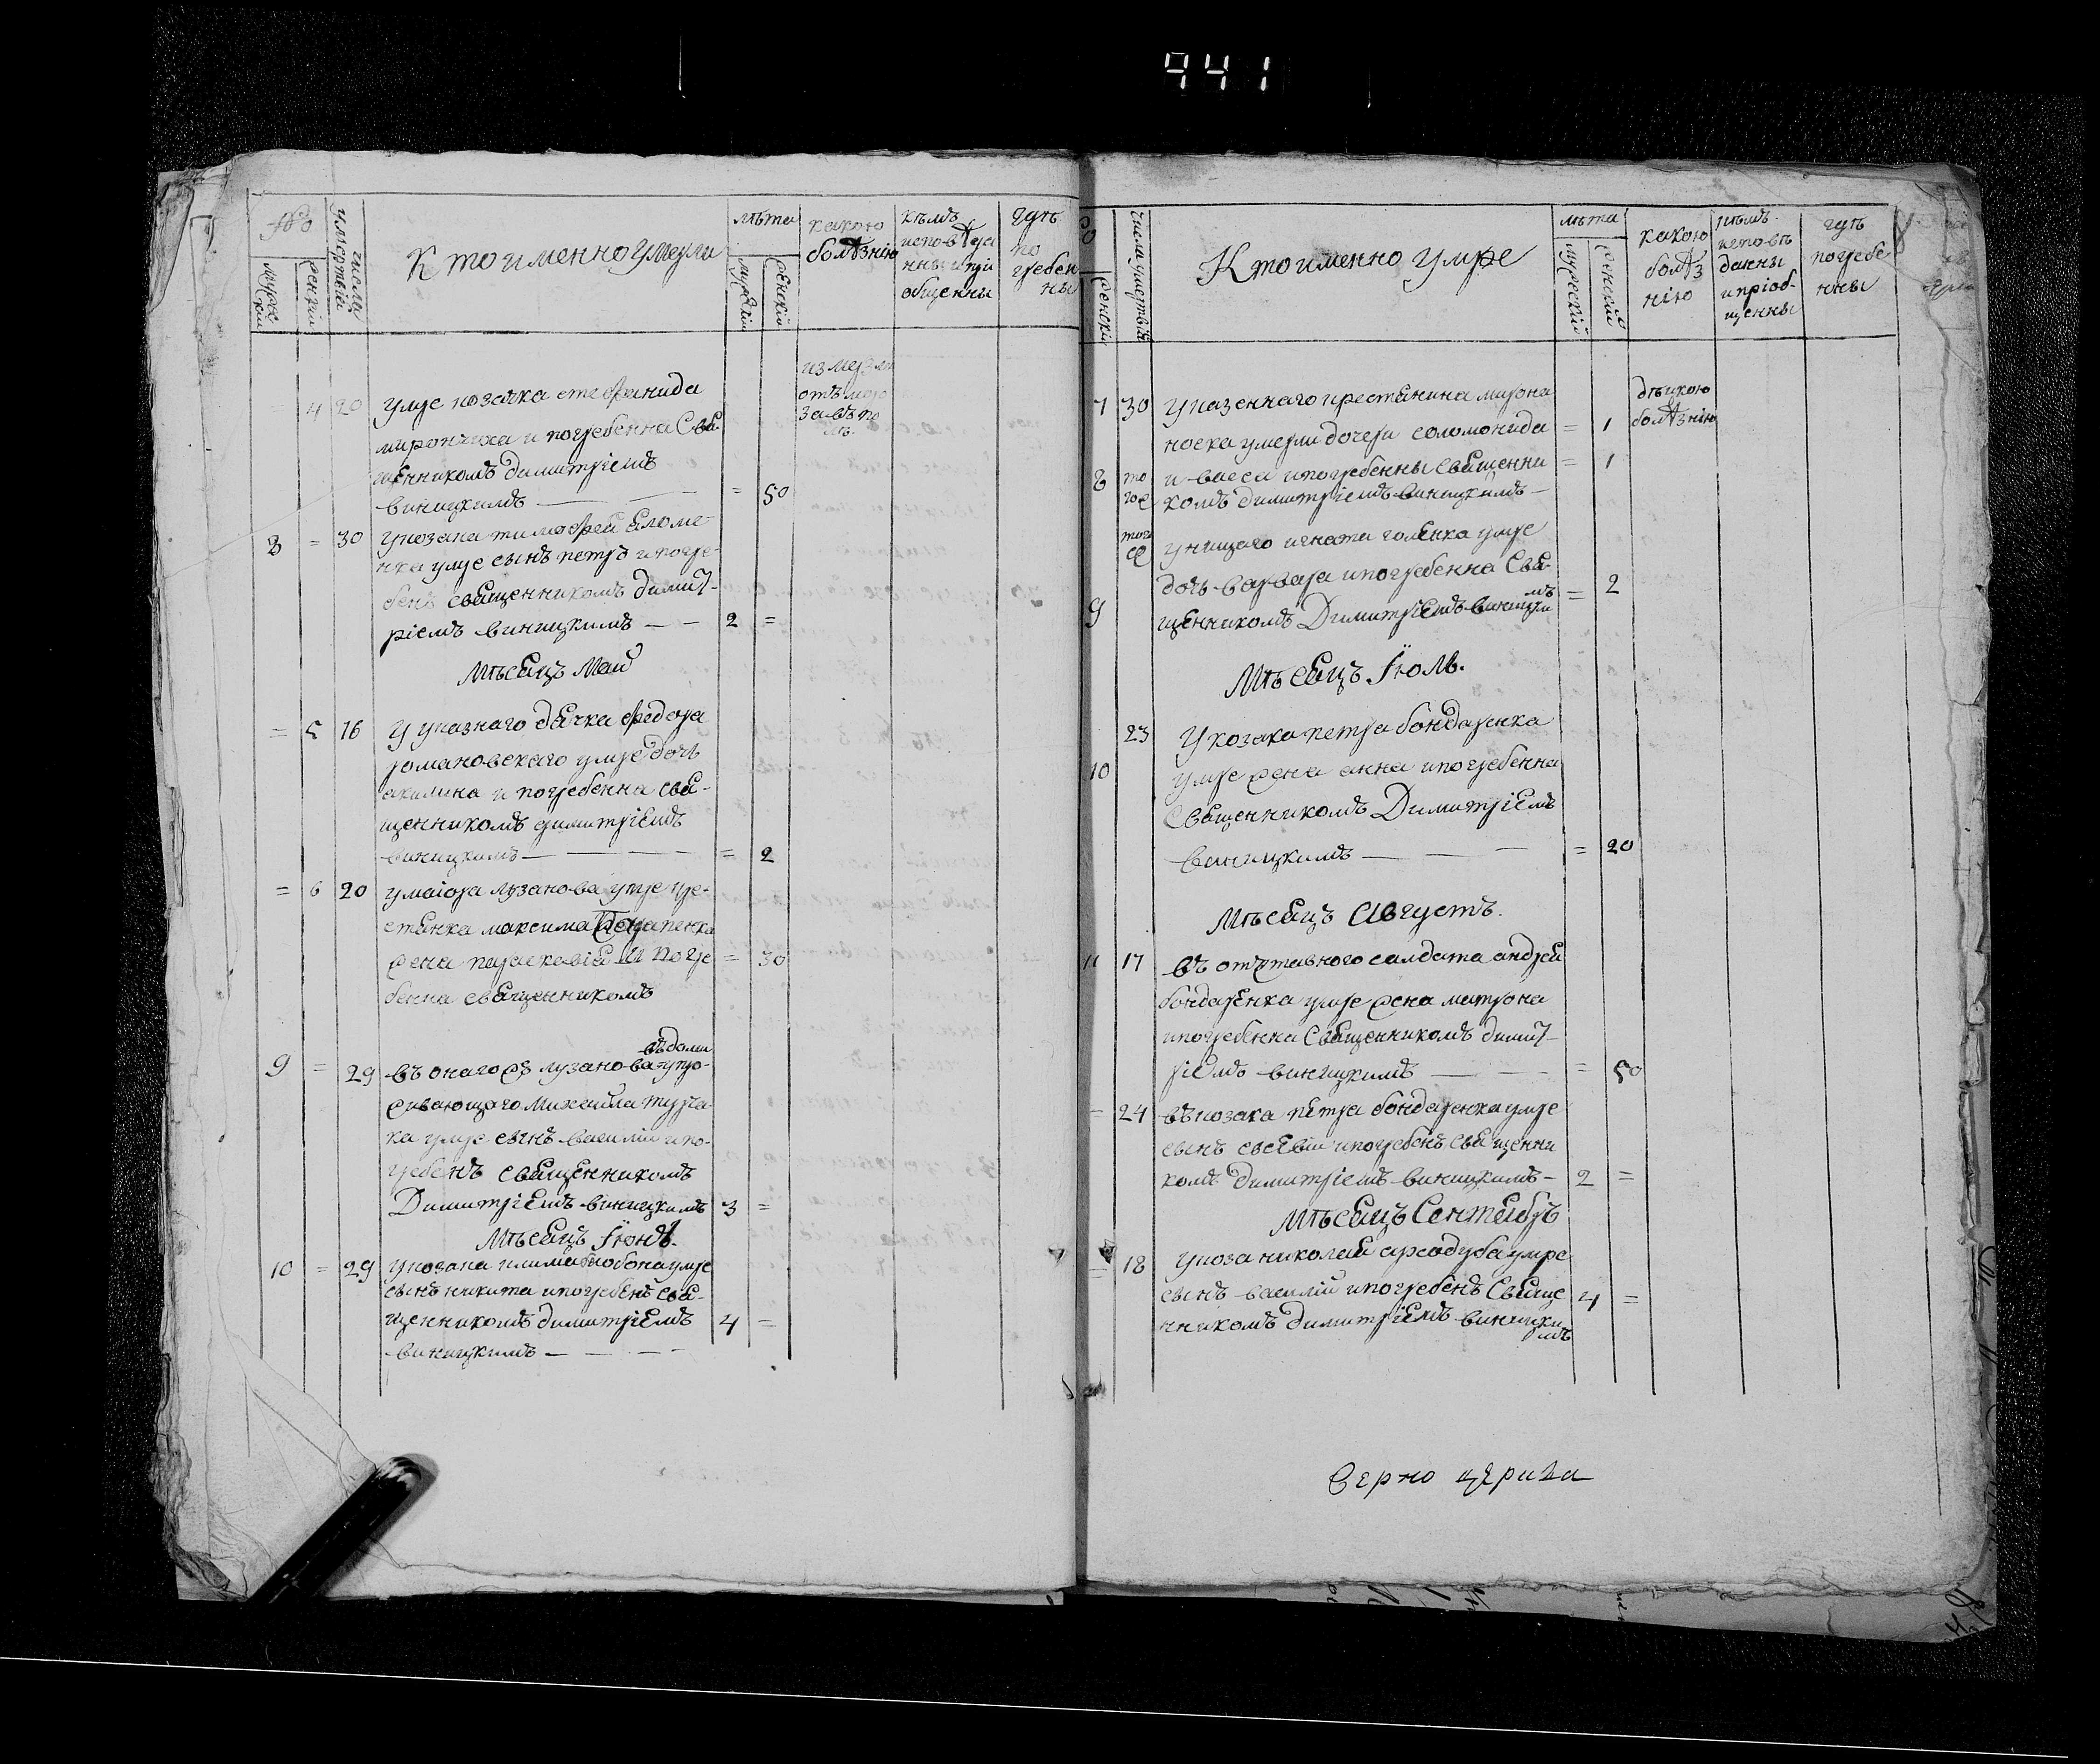 941
№
мужск
женскій
число умертвій
Кто именно умерли
лѣта
мужескій
женскій
какою
болѣзнію
кѣмъ
исповѣда
нны и прі
общенны
гдѣ
по
гребен
ны
4 20 умре козачка стефанида
мирончиха и погребенна свя-
щенникомъ димитріемъ
виницкимъ — = 50
отъ
8 = 30 у козака тимофея еломе-
нка умре сынъ петръ и погре-
бенъ священникомъ димит-
ріемъ виницкимъ — — 2 =
Мѣсяцъ Маій
= 5 16 у указнаго дячка федора
романовскаго умре дочь
акилина и погребенна свя-
щенникомъ димитріемъ
виницкимъ — = 2
= 6 20 у маіора лузанова умре кре-
стянка максима
жена параскавія и погре = 30
бенна священникомъ
въ доми
9 = 29 въ онаго же лузанова упро-
живающаго михаила турча-
ка умре сынъ василій и по-
гребенъ священникомъ
Димитріемъ виницкимъ 3 =
Мѣсяцъ Іюнь.
10 = 29 у козака умре
сынъ никита и погребенъ свя-
щенникомъ димитріемъ 4 =
виницкимъ —
женскій
числа умертвій
Кто именно умре
лѣта
мужескій
женскій
какою
болѣз
нію
кѣмъ
исповѣ
данны
и пріоб-
щенны
гдѣ
погребе
нны
7 30 у казеннаго крестянина мирона дѣцкою
носка умерли дочери соломонида = 1 болѣзнію
8 того же и васса и погребенны священни = 1
комъ димитріемъ виницкимъ —
того же у нищаго игната голенка умре
дочь варвара и погребенна свя- = 2
9 щенникомъ Димитріемъ виницкимъ
Мѣсяцъ Іюль.
23 У козака петра бондаренка
10 умре жена анна и погребенна
священникомъ Димитріемъ
виницкимъ — = 20
Мѣсяцъ Августъ.
11 17 въ отставного салдата андрея
бондаренка умре жена матрона
и погребенна священникомъ димит-
ріемъ виницкимъ — = 50
= 24 въ козака петра бондаренка умре
сынъ евсевій и погребенъ священни
комъ димитріемъ виницкимъ — 2 =
Мѣсяцъ Сентябрь
= 18 у коза николая умре
сынъ василій и погребенъ свяще 4 =
нникомъ димитріемъ виницкимъ
Верно церква